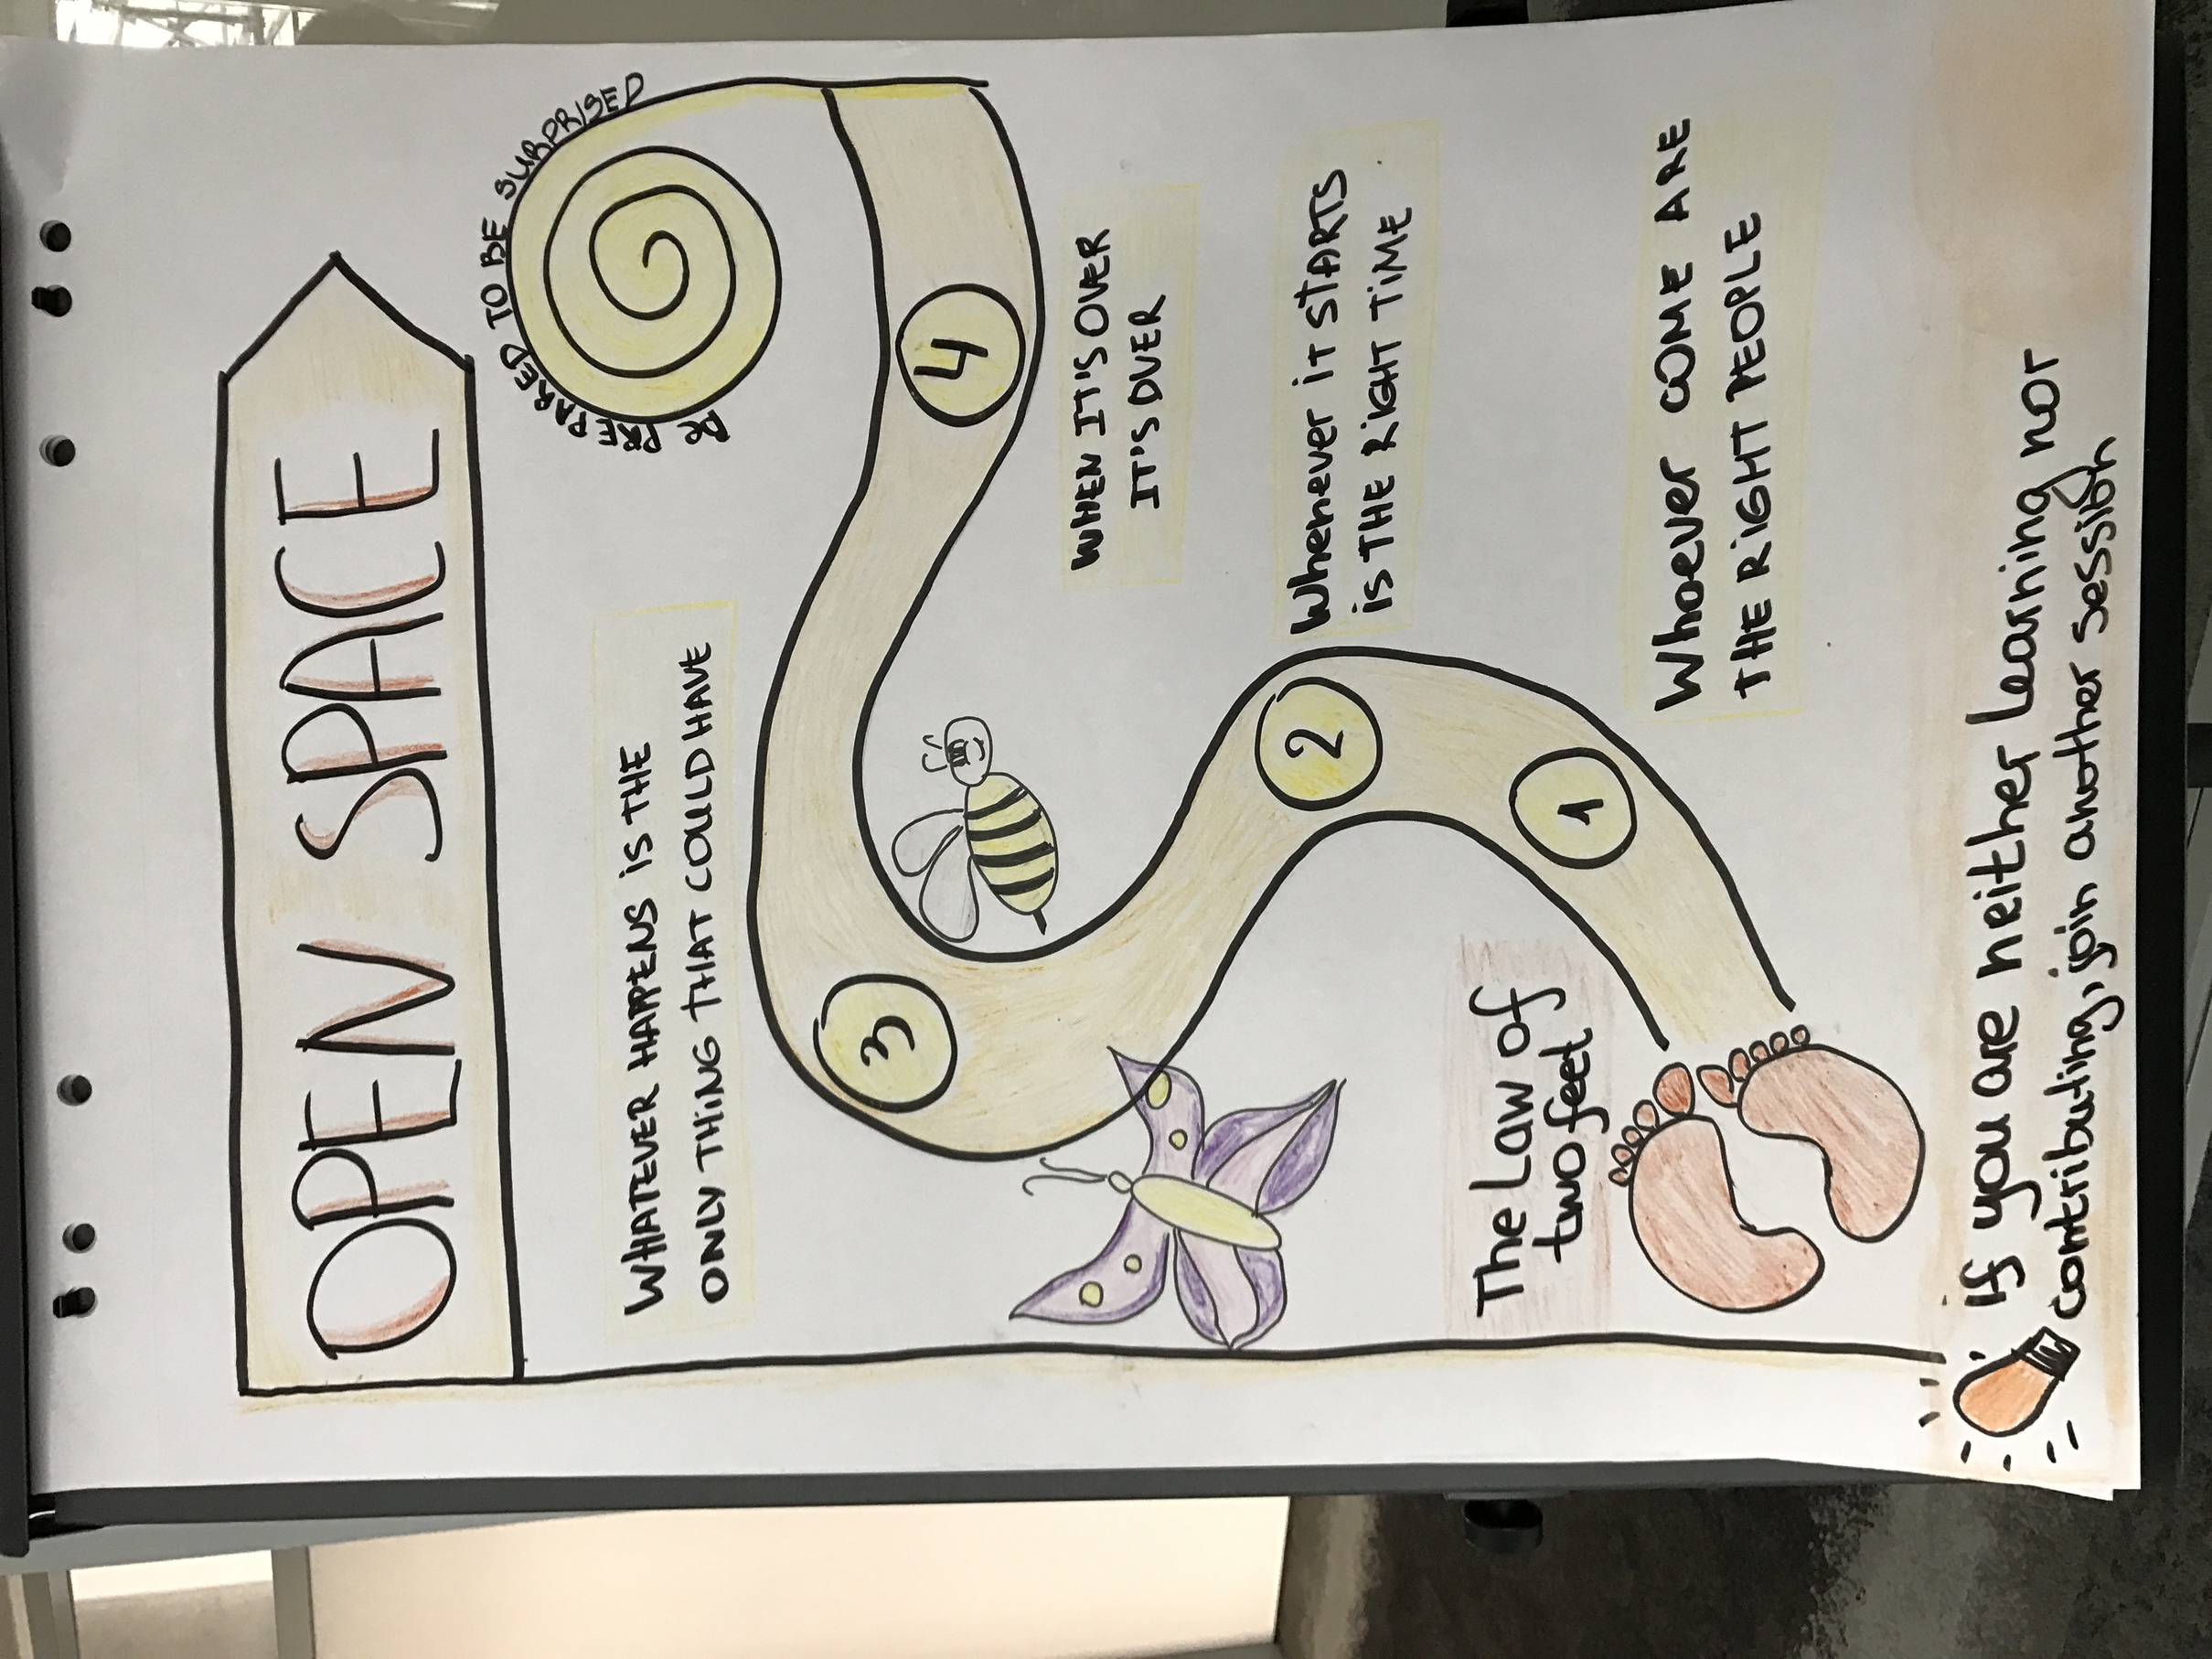 OPEN SPACE
BE PREPARED TO BE SURPRISED
WHATEVER HAPPENS iS THE
ONLY THiNG THAT COULD HAVE
3
4
WHEN IT'S OVER
IT'S OVER
2
Whenever iT STARTS
iS THE RiGHT TiME
The Law of
two feet
1
Whoever COME ARE
THE RiGHT PEOPLE
if you are neither learning nor
contributing, join another session